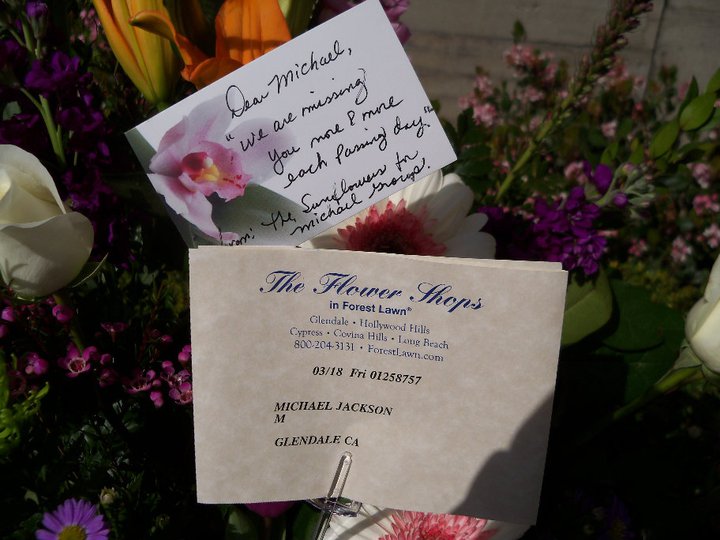 Dear Michael,
"We are missing
you more & more
each passing day."
from: The Sunflowers for
michael group.
The Flower Shops
in Forest Lawn®
Glendale • Hollywood Hills
Cypress • Covina Hills • Long Beach
800-204-3131 • ForestLawn.com
03/18 Fri 01258757
MICHAEL JACKSON
M
GLENDALE CA